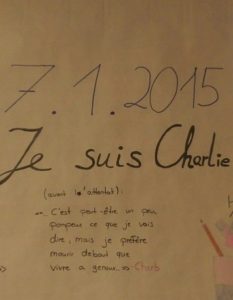 7.1.2015
Je suis Charlie
(avant l'attentat):
« C'est peut-être un peu
pompeux ce que je vais
dire, mais je préfère
mourir debout que
vivre à genoux. » Charb